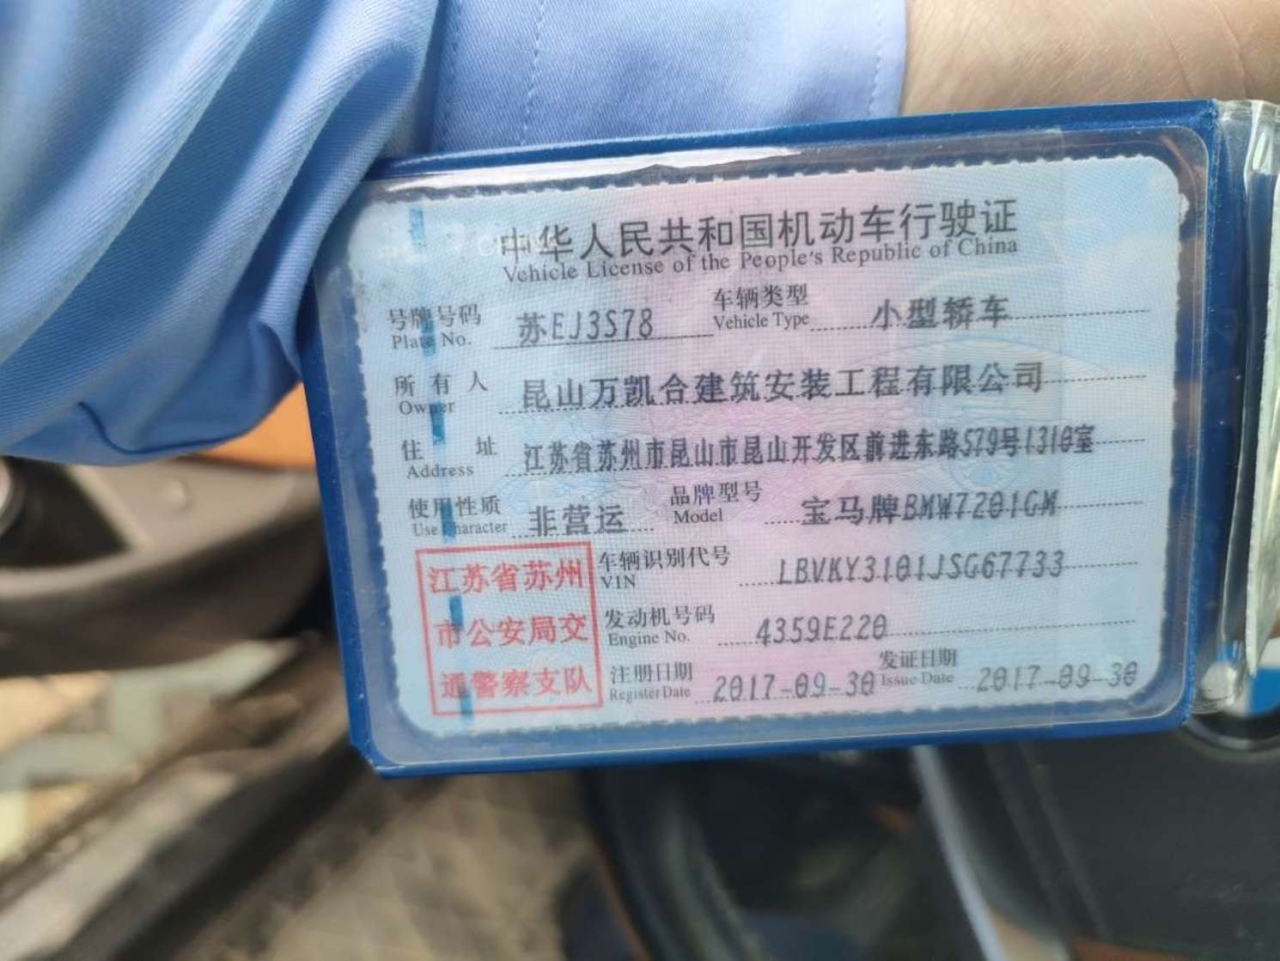 中华人民共和国机动车行驶证
Vehicle License of the People's Republic of China
号牌号码 苏EJ3S78 车辆类型 小型轿车
Plate No. Vehicle Type
所有人 昆山万凯合建筑安装工程有限公司
Owner
住址 江苏省苏州市昆山市昆山开发区前进东路579号1310室
Address
使用性质 非营运 品牌型号 宝马牌BMW7201GM
Use Character Model
江苏省苏州
市公安局交
通警察支队
车辆识别代号 LBVKY3101JSG67733
VIN
发动机号码 4359E220
Engine No.
注册日期 2017-09-30 发证日期 2017-09-30
Register Date Issue Date